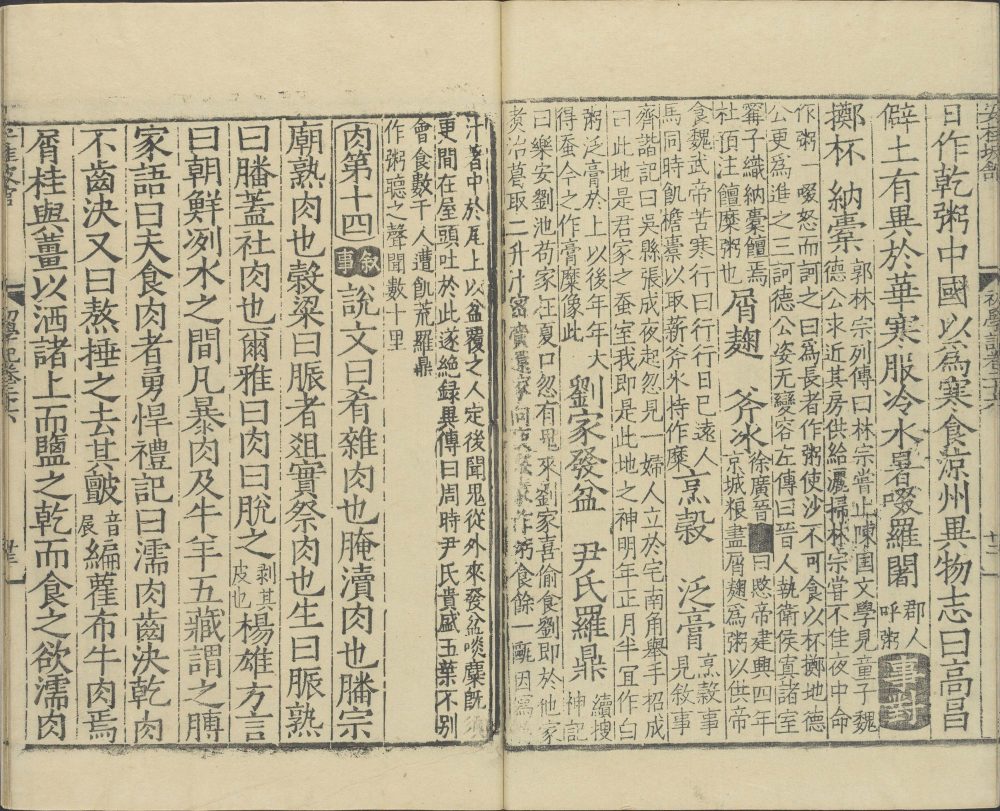 日作乾粥中國以爲寒食涼州異物志曰高昌
僻土有異於華寒服冷水暑啜羅闍郡人呼粥事對
擲杯 納橐郭林宗列傳曰林宗嘗止陳国文學見童子魏
德公求近其房供給灑掃林宗嘗不佳夜中命
作粥一啜怒而訶之曰爲長者作粥使沙不可食以杯擲地德
公更爲進之三訶德公姿无變容左傳曰晉人執衛侯寘諸
甯子職納橐饘焉
杜預注饘糜粥也 屑麹 斧氷徐廣晉 曰愍帝建興四年
京城粮盡屑麹爲粥以供帝
食魏武帝苦寒行曰行行日已遠人
馬同時飢檐橐以取薪斧氷持作糜 烹穀 泛膏烹穀事
見敘事
齊諧記曰吳縣張成夜起忽見一婦人立於宅南角舉手招成
曰此地是君家之蚕室我即是此地之神明年正月半宜作白
粥泛膏於上以後年年大
得蚕今之作膏糜像此 劉家發盆 尹氏羅鼎續搜
神記
曰樂安劉池苟家在夏口忽有鬼來劉家喜偷食劉即於他家
煑冶葛取二升汁密 食餘一甌因爲
汗 中於 上以盆覆之人定後聞鬼從外來發盆啖糜既
更間在屋頭吐於此遂絶録異傳曰周時尹氏貴盛五葉不别
會食數千人遭飢荒羅鼎
作粥聽之聲聞數十里
肉第十四敘事說文曰肴雜肉也腌瀆肉也膰宗
廟熟肉也榖梁曰脤者爼實祭肉也生曰脤熟
曰膰蓋社肉也爾雅曰肉曰脫之剥其皮也楊雄方言
曰朝鮮洌水之間凡暴肉及牛羊五藏謂之膊
家語曰夫食肉者勇悍禮記曰濡肉齒決乾肉
不齒決又曰熬捶之去其皽音展編萑布牛肉焉
屑桂與薑以洒諸上而鹽之乾而食之欲濡肉
初學記卷